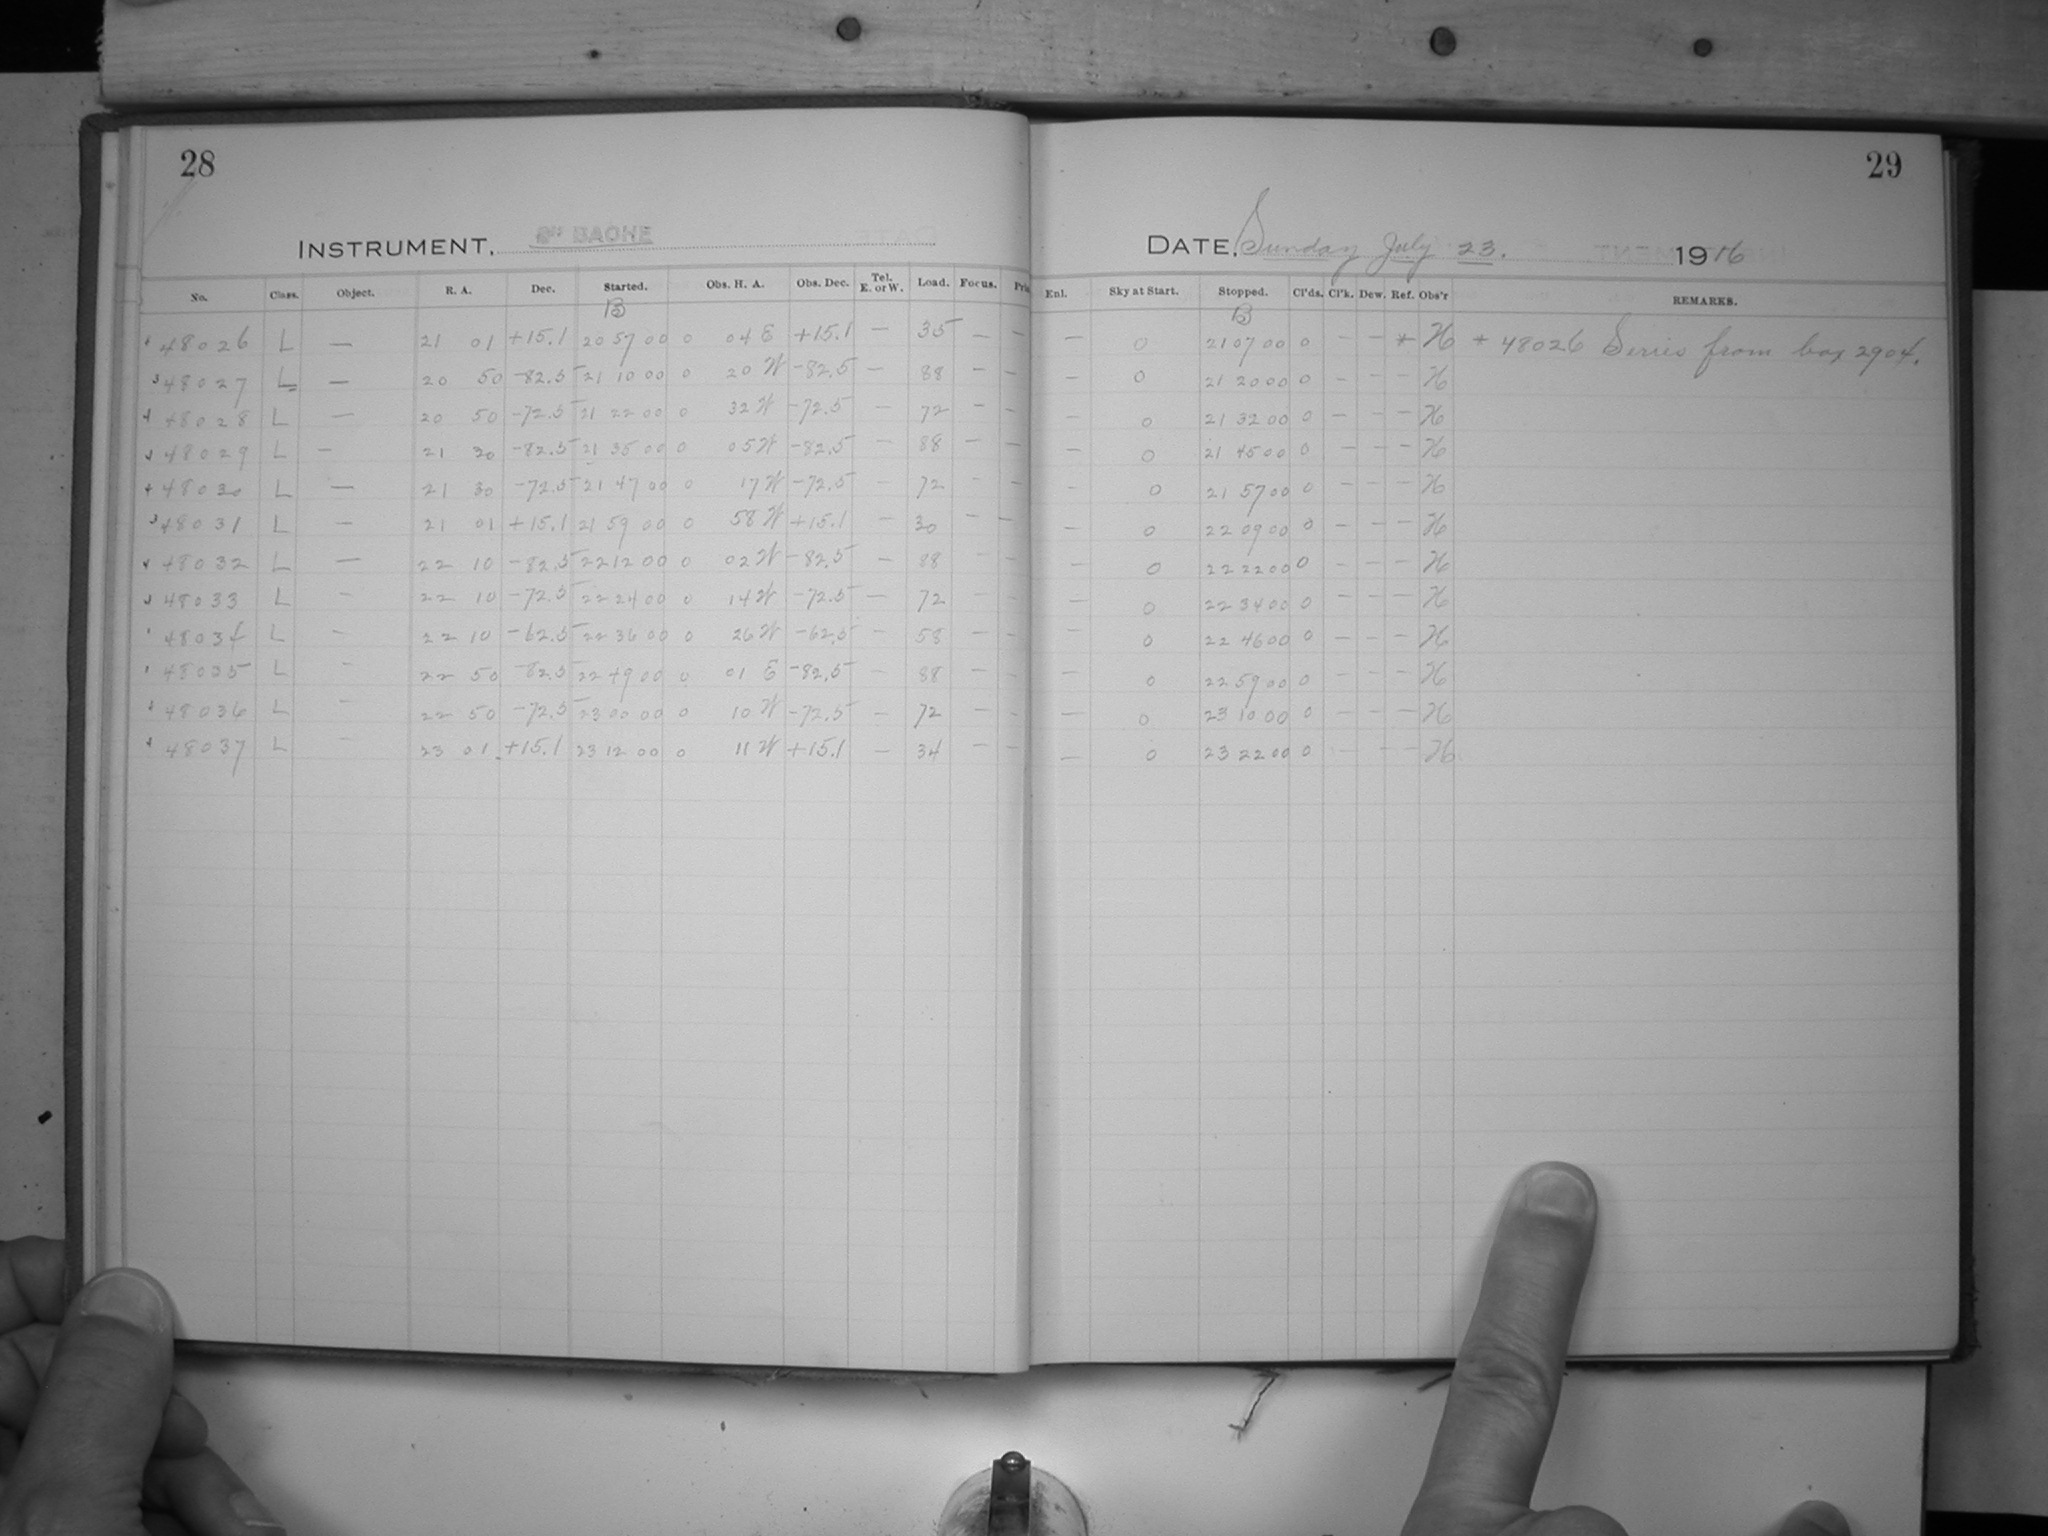 28
INSTRUMENT, 8" BACHE
No. Class. Object. R. A. Dec. Started. Obs. H. A. Obs. Dec. Tel. E. or W. Load. Focus.
B
48026 L — 21 01 +15.1 20 57 00 0 04 E +15.1 — 35 — —
48027 L — 20 50 -82.5 21 10 00 0 20 W -82.5 — 88 — —
48028 L — 20 50 -72.5 21 22 00 0 32 W -72.5 — 72 — —
48029 L — 21 30 -82.5 21 35 00 0 05 W -82.5 — 88 — —
48030 L — 21 30 -72.5 21 47 00 0 17 W -72.5 — 72 — —
48031 L — 21 01 +15.1 21 59 00 0 58 W +15.1 — 30 — —
48032 L — 22 10 -82.5 22 12 00 0 02 W -82.5 — 88 — —
48033 L — 22 10 -72.5 22 24 00 0 14 W -72.5 — 72 — —
48034 L — 22 10 -62.5 22 36 00 0 26 W -62.5 — 58 — —
48035 L — 22 50 -82.5 22 49 00 0 01 E -82.5 — 88 — —
48036 L — 22 50 -72.5 23 00 00 0 10 W -72.5 — 72 — —
48037 L — 23 01 +15.1 23 12 00 0 11 W +15.1 — 34 — —
29
DATE, Sunday July 23. 1916
Enl. Sky at Start. Stopped. Cl'ds. Cl'k. Dew. Ref. Obs'r REMARKS.
B
— 0 21 07 00 0 — — * H * 48026 Series from box 2904.
— 0 21 20 00 0 — — — H
— 0 21 32 00 0 — — — H
— 0 21 45 00 0 — — — H
— 0 21 57 00 0 — — — H
— 0 22 09 00 0 — — — H
— 0 22 22 00 0 — — — H
— 0 22 34 00 0 — — — H
— 0 22 46 00 0 — — — H
— 0 22 59 00 0 — — — H
— 0 23 10 00 0 — — — H
— 0 23 22 00 0 — — — H